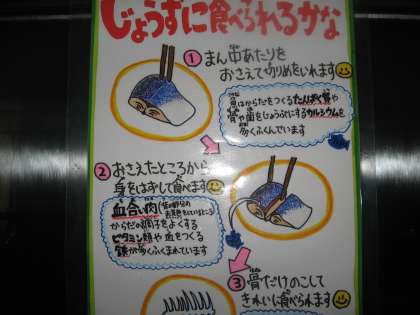 じょうずに食べられるかな
① まん中あたりを
おさえて切りめをいれます
魚はからだをつくるたんぱく質や
骨や歯をじょうぶにするカルシウムを
多くふくんでいます
② おさえたところから
身をはずして食べます
血合い肉
からだの調子をよくする
ビタミン類や血をつくる
鉄が多くふくまれています
③ 骨だけのこして
きれいに食べられます